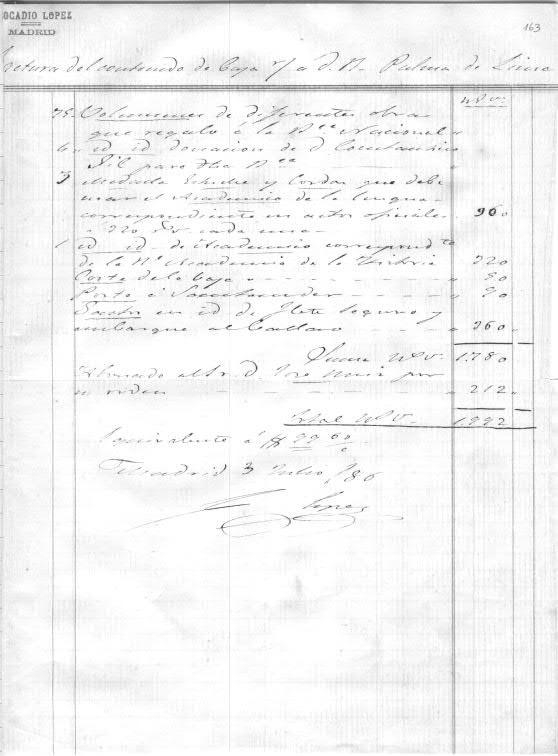 OCADIO LOPEZ
MADRID
163
del contenido de Caja á d. R. Palma de Lima
75 Volumenes de diferentes obras
que regalo á la B.ca Nacional
6 id id donacion de d
para dha B.ca
3 Medalla y Cordon que debe
usar el Academico de la lengua
correspondiente en actos oficiales
á 320 cada una 960
1 id id de Academico correspond.te
de la R.l Academia de la Historia 320
Corte de la caja
Porte á Santander 90
Gastos en id de flete seguro y
embarque al Callao
Suma 1.780
Abonado al Sr. D. José por
su orden 212
Total 1.992
Equivalente á $ 99 60
Madrid 3 Julio 86
Lopez